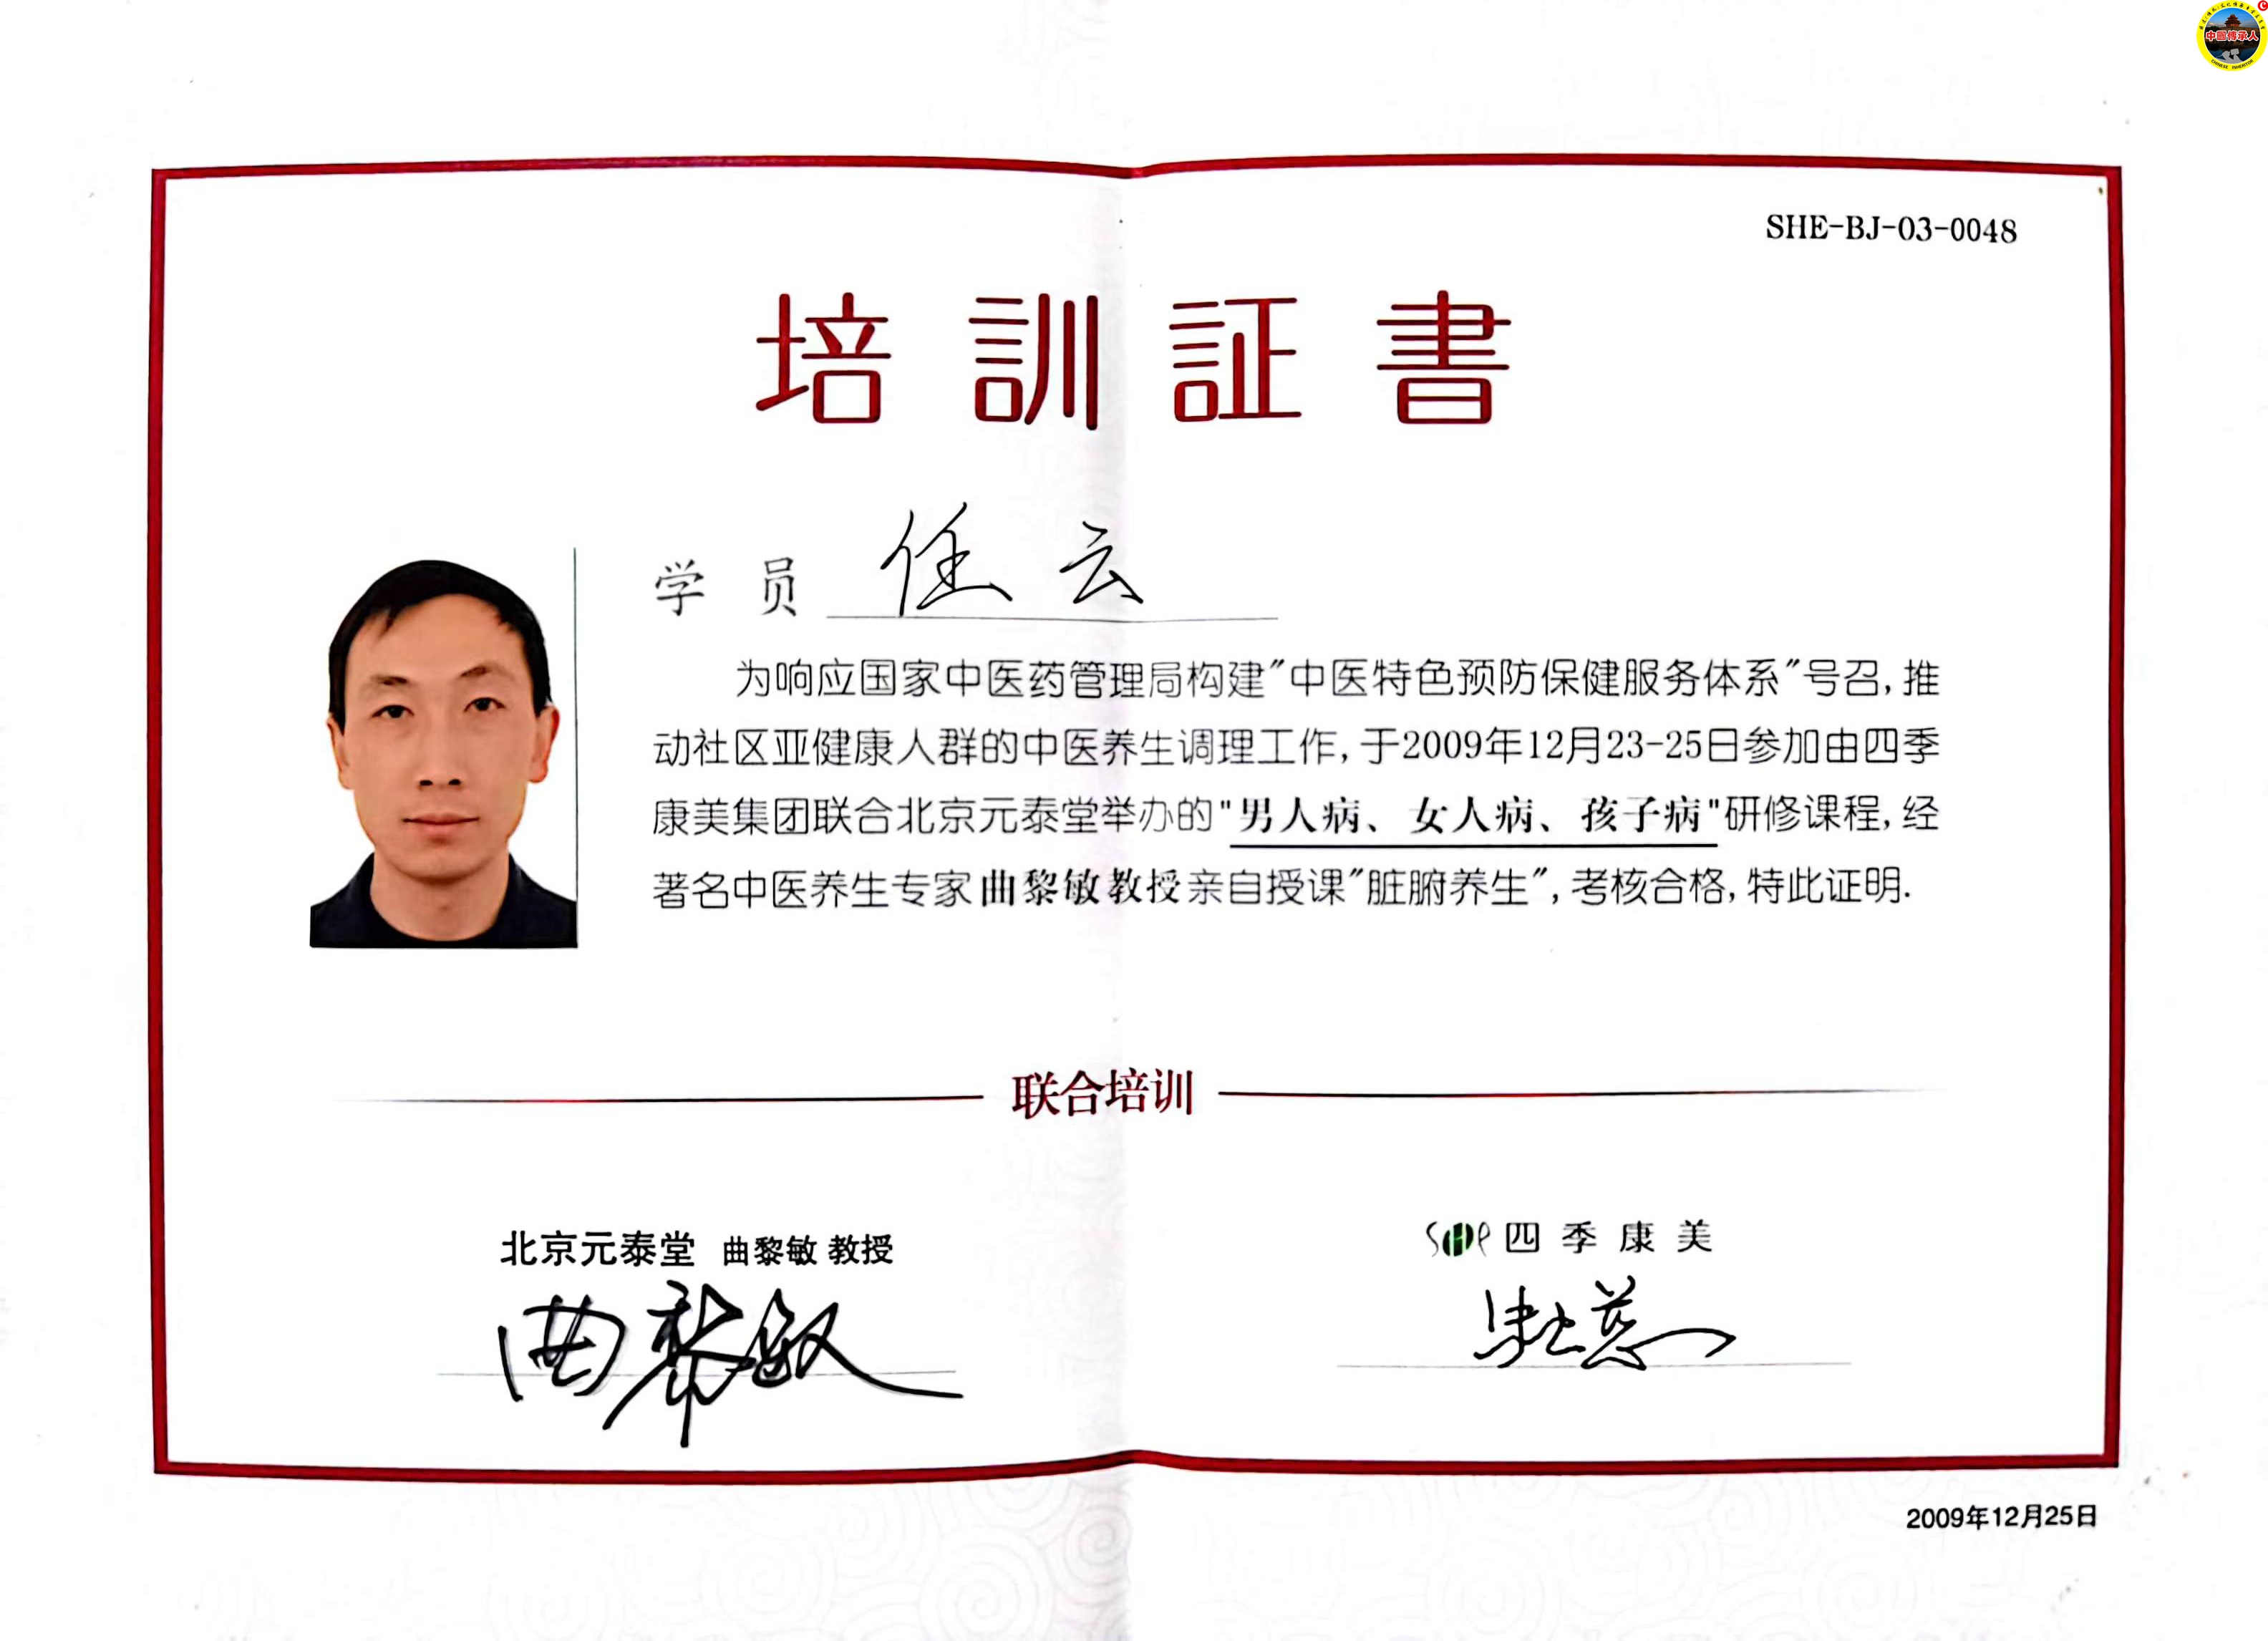 中國傳承人
CHINESE INHERITOR
SHE-BJ-03-0048
培訓証書
学员 任云
为响应国家中医药管理局构建"中医特色预防保健服务体系"号召,推
动社区亚健康人群的中医养生调理工作,于2009年12月23-25日参加由四季
康美集团联合北京元泰堂举办的"男人病、女人病、孩子病"研修课程,经
著名中医养生专家曲黎敏教授亲自授课"脏腑养生",考核合格,特此证明.
联合培训
北京元泰堂 曲黎敏 教授
曲黎敏
SHE 四季康美
2009年12月25日